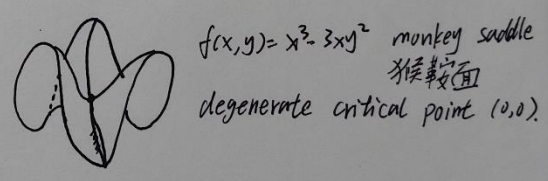 f(x,y)= x³- 3xy² monkey saddle
猴鞍面
degenerate critical point (0,0).